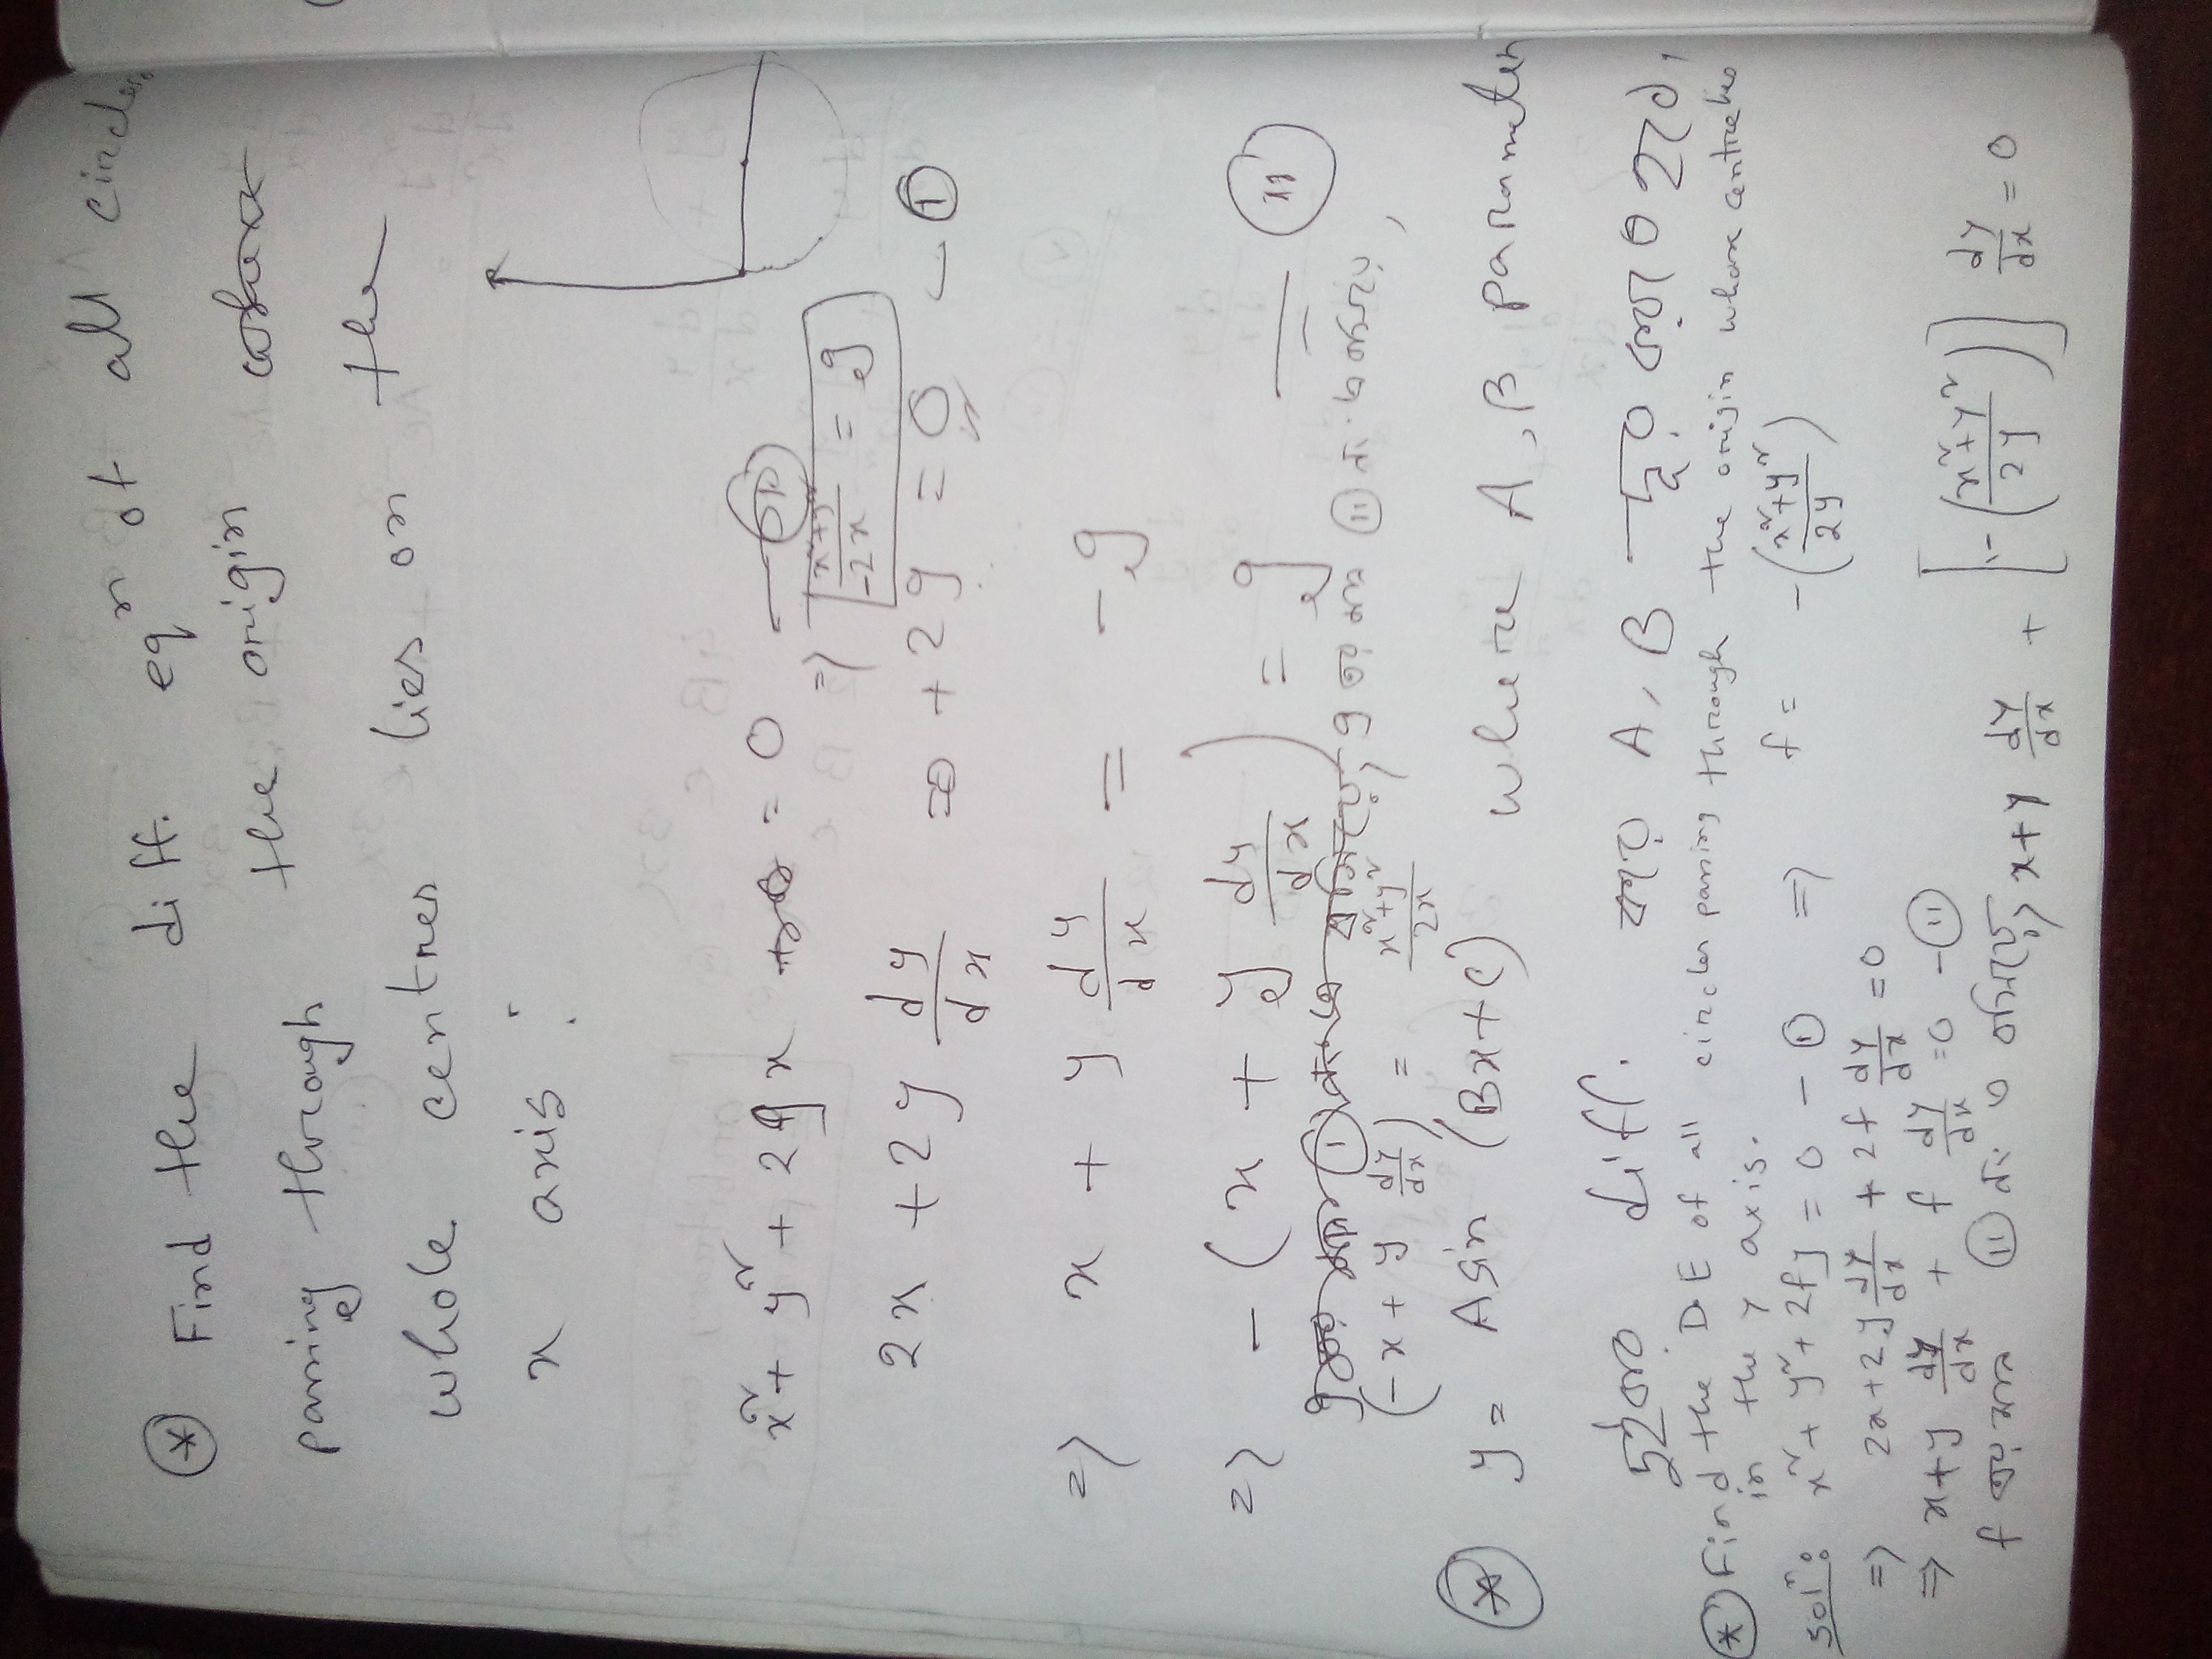 * Find the diff. eqⁿ of all circles
passing through the origin
whole centres lies on the
x axis :
x² + y² + 2gx = 0
=> (x²+y²)/(-2x) = g
2x + 2y dy/dx + 2g = 0 — (i)
=> x + y dy/dx = -g
=> - (x + y dy/dx) = g — (ii)
(-x + y dy/dx) = (x²+y²)/(2x)
* y = A sin (Bx+c) where A, B parameter
diff. করে A, B
* Find the D.E of all circles passing through the origin whose centre lies
in the y axis.
Solⁿ: x² + y² + 2fy = 0 - (i) => f = -((x²+y²)/(2y))
=> 2x + 2y dy/dx + 2f dy/dx = 0
=> x + y dy/dx + f dy/dx = 0 - (ii)
f এর মান (ii) নং এ বসিয়ে, x + y dy/dx + [-((x²+y²)/(2y))] dy/dx = 0